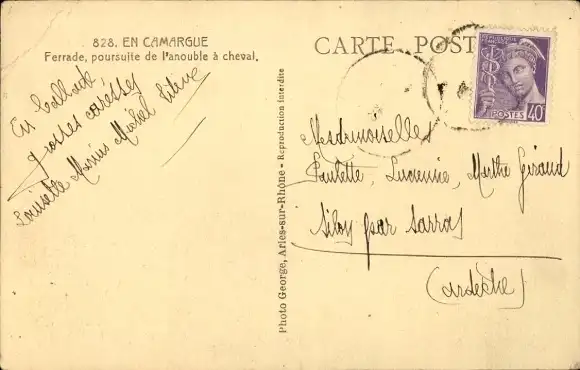 828. EN CAMARGUE
Ferrade, poursuite de l'anouble à cheval.
En ballade
grosses caresses
Louisette Marius Michel
CARTE POST
REPUBLIQUE FRANÇAISE
POSTES 40
Mesdemoiselles
Paulette, Lucienne, Marthe Giraud
par Sarras
(Ardèche)
Photo George, Arles-sur-Rhône - Reproduction interdite